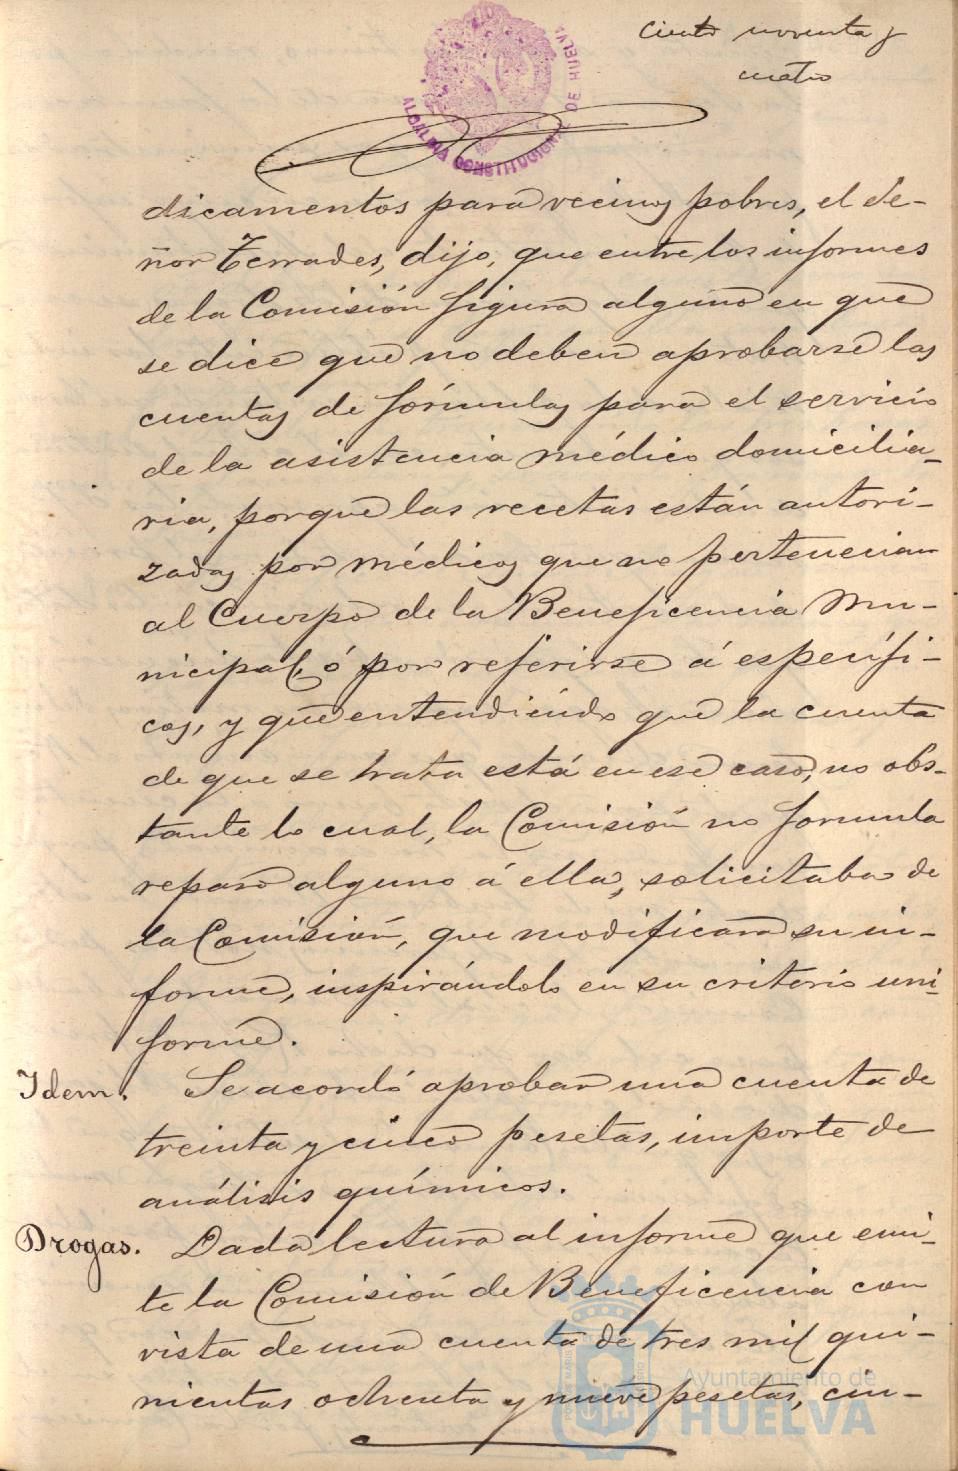 ciento noventa y
cuatro
ALCALDIA CONSTITUCIONAL DE HUELVA
dicamentos para vecinos pobres, el Se-
ñor Terrades, dijo, que entre los informes
de la Comisión figura alguno en que
se dice que no deben aprobarse las
cuentas de fórmulas para el servicio
de la asistencia médico domicilia-
ria, porque las recetas están autori-
zadas por médicos que no pertenecian
al Cuerpo de la Beneficencia Mu-
nicipal, ó por referirse á específi-
cos, y que entendiéndo que la cuenta
de que se trata está en ese caso, no obs-
tante lo cual, la Comisión no formula
reparo alguno á ella, solicitaba de
la Comisión, que modificara su in-
forme, inspirándolo en su criterio uni-
forme.
Idem. Se acordó aprobar una cuenta de
treinta y cinco pesetas, importe de
análisis químicos.
Drogas. Dada lectura al informe que emi-
te la Comisión de Beneficencia con
vista de una cuenta de tres mil qui-
nientas ochenta y nueve pesetas, cin-
Ayuntamiento de
HUELVA